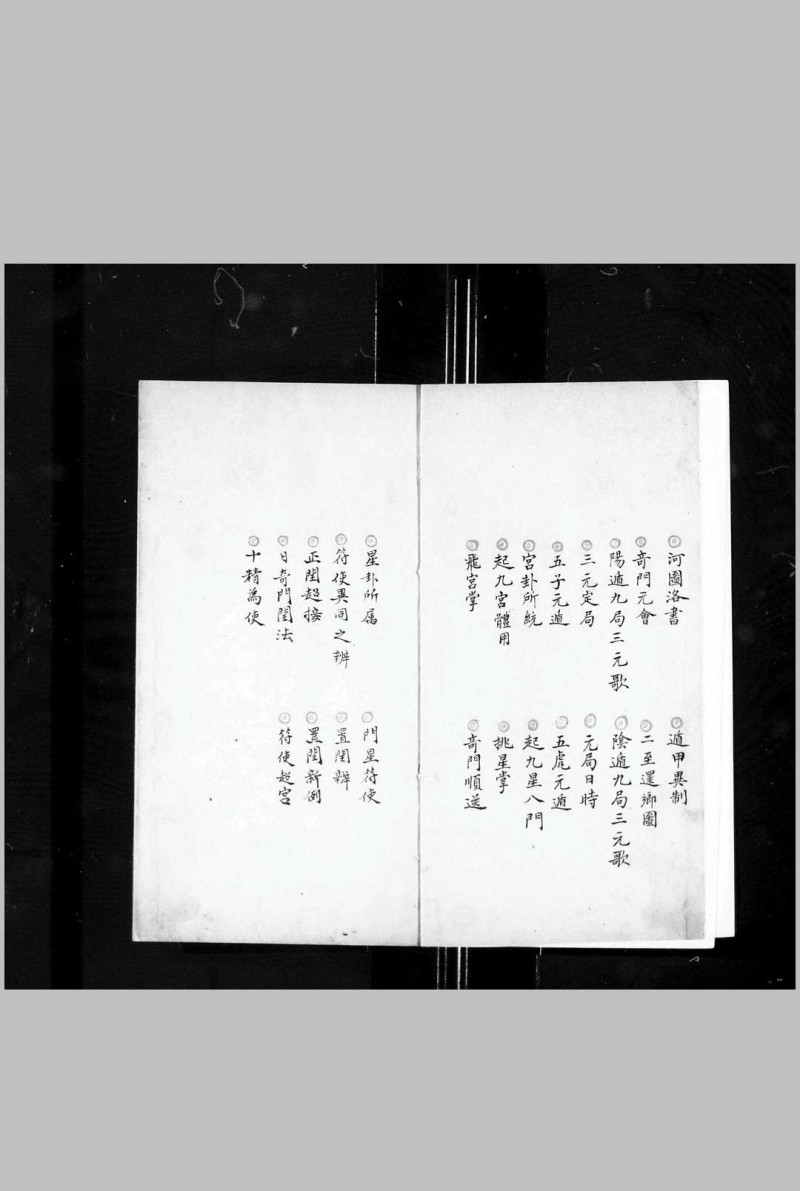 河圖洛書
遁甲異制
竒門元會
二至還鄉圖
陽遁九局三元歌
陰遁九局三元歌
三元定局
元局日時
五子元遁
五虎元遁
宮卦所統
起九星八門
起九宮體用
挑星掌
飛宮掌
竒門順逆
星卦所屬
門星符使
符使異同之辨
置閏辨
正閏超接
置閏新例
日竒門閏法
符使超宮
十精為使